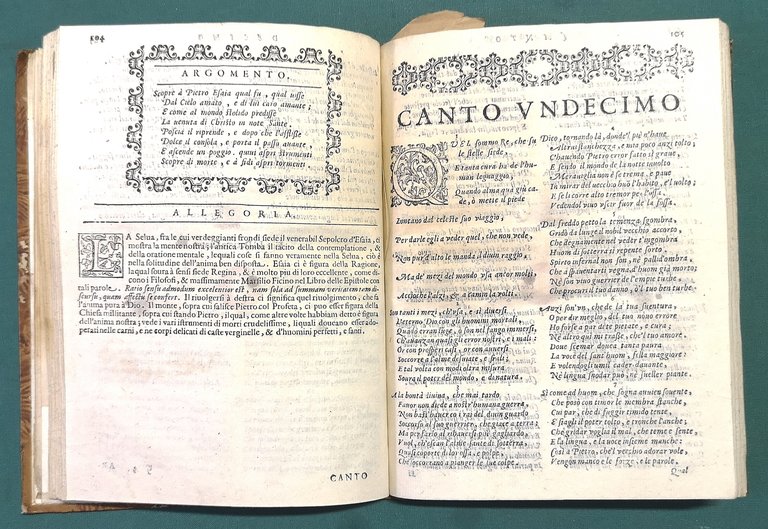 104
ARGOMENTO.
Scopre à Pietro Esaia qual fu, qual visse
Dal Cielo amato, e di lui caro amante;
E come al mondo stolido predisse
La uenuta di Christo in note Sante.
Poscia il riprende, e dopo che l'afflisse
Dolce il consola, e porta il passo auante,
E ascende un poggio. quini aspri strumenti
Scopre di morte, e à sidi aspri tormenti
ALLEGORIA.
LA Selua, fra le cui verdeggianti frondi siede il venerabil Sepolcro d'Esaia, ci
mostra la mente nostra; l'antica Tomba il tacito della contemplatione, &
della oratione mentale, lequali cose si fanno veramente nella Selua, ciò è
nella solitudine dell'anima ben disposta. Esaia ci è figura della Ragione,
la qual soura i sensi siede Regina, & è molto piu di loro eccellente, come di-
cono i Filosofi, & massimamente Marsilio Ficino nel Libro delle Epistole con
tali parole. Ratio sensu admodum excellentior est, nam sola ad summam veritatem
scursu, quam affectu se confert. Il riuolgersi à destra ci significa quel riuolgimento, che fa
l'anima pura à Dio. Il monte, sopra cui salisce Pietro col Profeta, ci può esser figura della
Chiesa militante, sopra cui stando Pietro, ilqual, come altre volte habbiam detto è figura
dell'anima nostra; vede i vari istrumenti di morti crudelissime, iquali doueano esser ado-
perati nelle carni, e ne corpi delicati di caste verginelle, & d'huomini perfetti, e santi.
CANTO
105
CANTO VNDECIMO
QVEL sommo Re, che su
le stelle siede,
Et ranta cura ha de l'hu-
man legnaggio,
Quando alma qua giù ca-
de, ò mette il piede
Lontano dal celeste suo viaggio,
Per darle egli a veder quel, che non vede,
Non pur d'alto le manda il diuin raggio,
Ma de' mezi del mondo vsa ancor molti,
Accioche l'alzi, e a camin la volti.
Son tanti i mezi, ch'vsa, e sì diuersi
L'eterno Dio con gli huomini mortali,
Quanti son quei, ch'ogni hor son nel fango immersi,
C'h'auanzan quasi gli error infiniti, e i mali;
Or con prosperi casi, or con auersi
Soccorre a l'alme desuiate, e frali;
Et tal volta con modi oltra misura
Soura il poter del mondo, e di natura.
A la bontà diuina, che mai tardo
Fauor non diede a nostr'humana guerra,
Non basta hauere i rai del diuin guardo
Soccorso al suo guerrier, che giace a terra;
Ma per farlo al rihauersi più gagliardo
Vuol, ch'Esaia l'ancor, ch'estinto sotterra,
Quasi coperte di lor ossa, e polpe,
Che soccorrano a pianger le sue colpe.
Dico, tornando là, donde'l piè n'hane
Altrui stanchezza, e mia poco anzi tolto,
C'hauendo Pietro error fatto sì graue
E essendo in mezo de la notte inuolto
Merauiglia non è se trema, e paue
In mirar del uecchio buò l'habito, e'l uolto;
E se li corre alto tremor per l'ossa,
Vedendol vino vscir fuor de la fossa.
Dal freddo petto la temenza sgombra,
Credò da lunge al nobil vecchio accorto,
Che degnamente nel vedere t'ingombra
Huom, che fu già cotanto tempo morto:
Spirto infernal non son, nè palida ombra,
Che a spauentarti vegna; ad huom già morto;
Che precipiti il tuo danno, o'l tuo ben turbe.
Anzi son'vn, che de la tua suentura,
Oper die meglio, del tuo nouo errore
Ho forse a par di te pietate, e cura;
Nè altro qui mi trasse, che'l tuo amore.
Doue fermar donea tanta paura
La voce del sant'huom, fella maggiore:
E volendogli umil cader dauante,
Nè lingua snodar può, nè sueller piante.
Sì come ad huom, che sogna auuien souente,
Che posò con timor le membra stanche,
Cui par, che di fuggir timido tente,
E siagli il poter tolto, e tronche l'anche;
Che gridar voglia il mal, che teme e sente,
E la lingua, e la uoce insieme manche:
Così à Pietro, ch'el vecchio adorar vole,
Vengon manco le forze, e le parole.
Qual